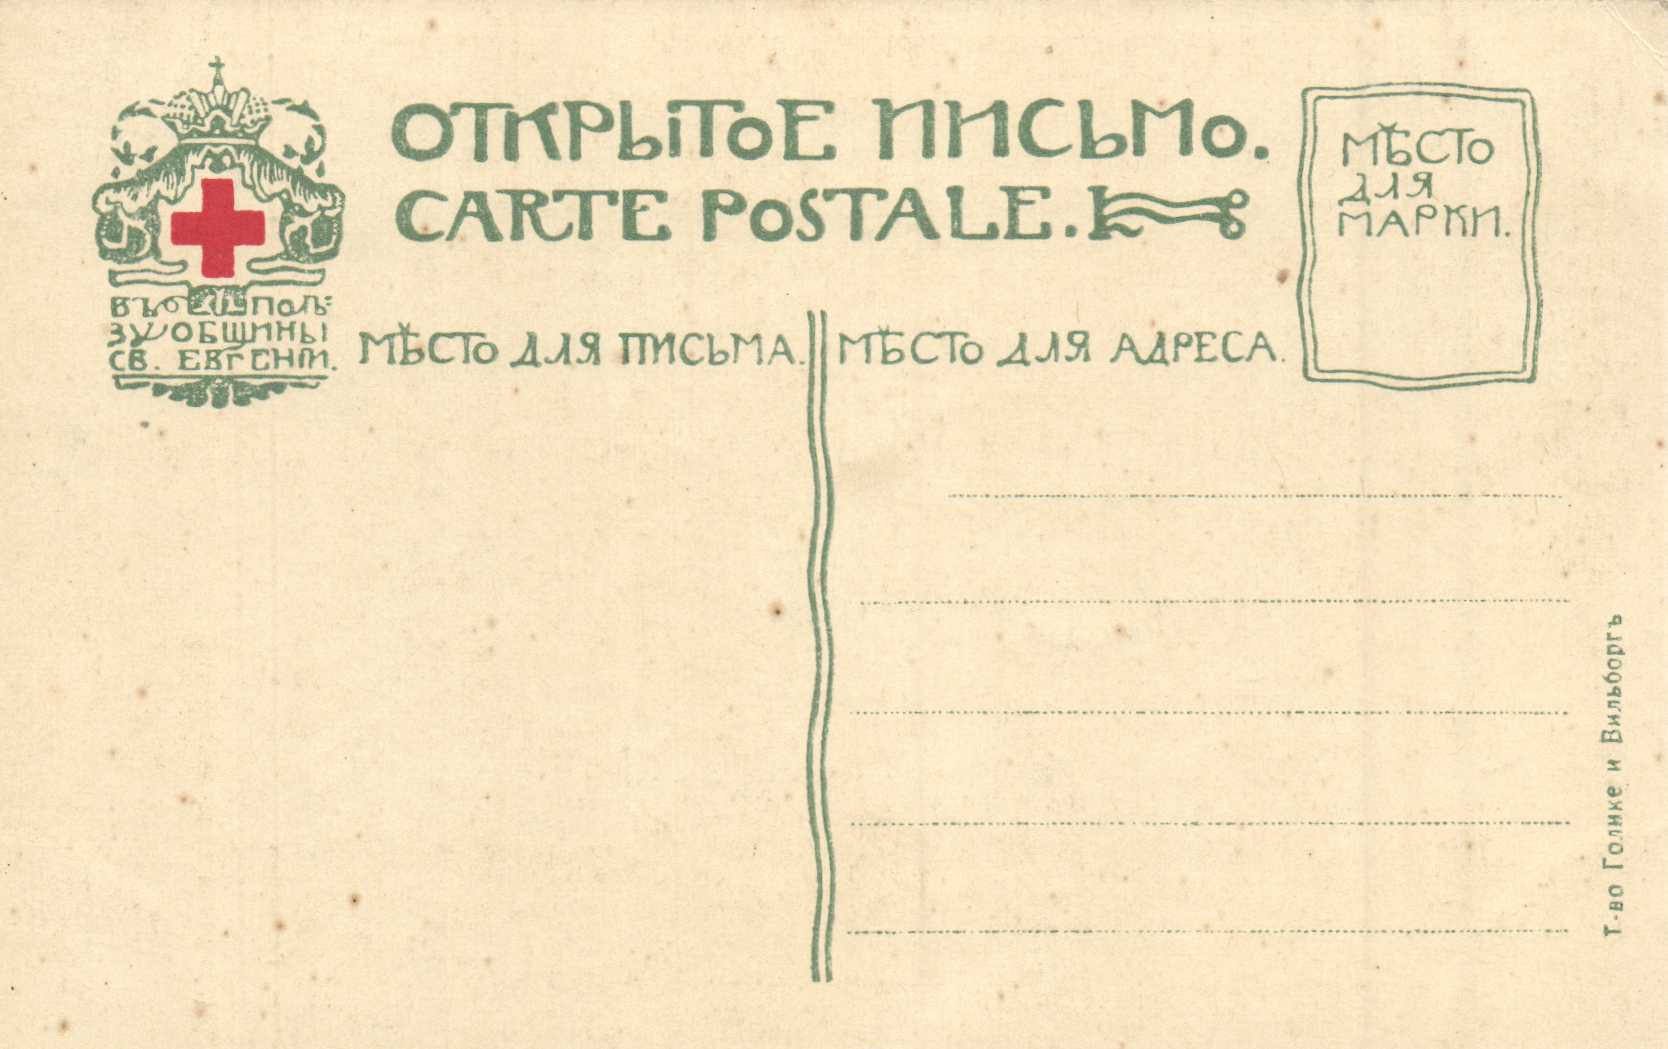 ОТКРЫТОЕ ПИСЬМО.
CARTE POSTALE.
МѢСТО
ДЛЯ
МАРКИ.
ВЪ ПОЛЬ=
ЗУ ОБЩИНЫ
СВ. ЕВГЕНІИ.
МѢСТО ДЛЯ ПИСЬМА.
МѢСТО ДЛЯ АДРЕСА.
Т-во Голике и Вильборгъ